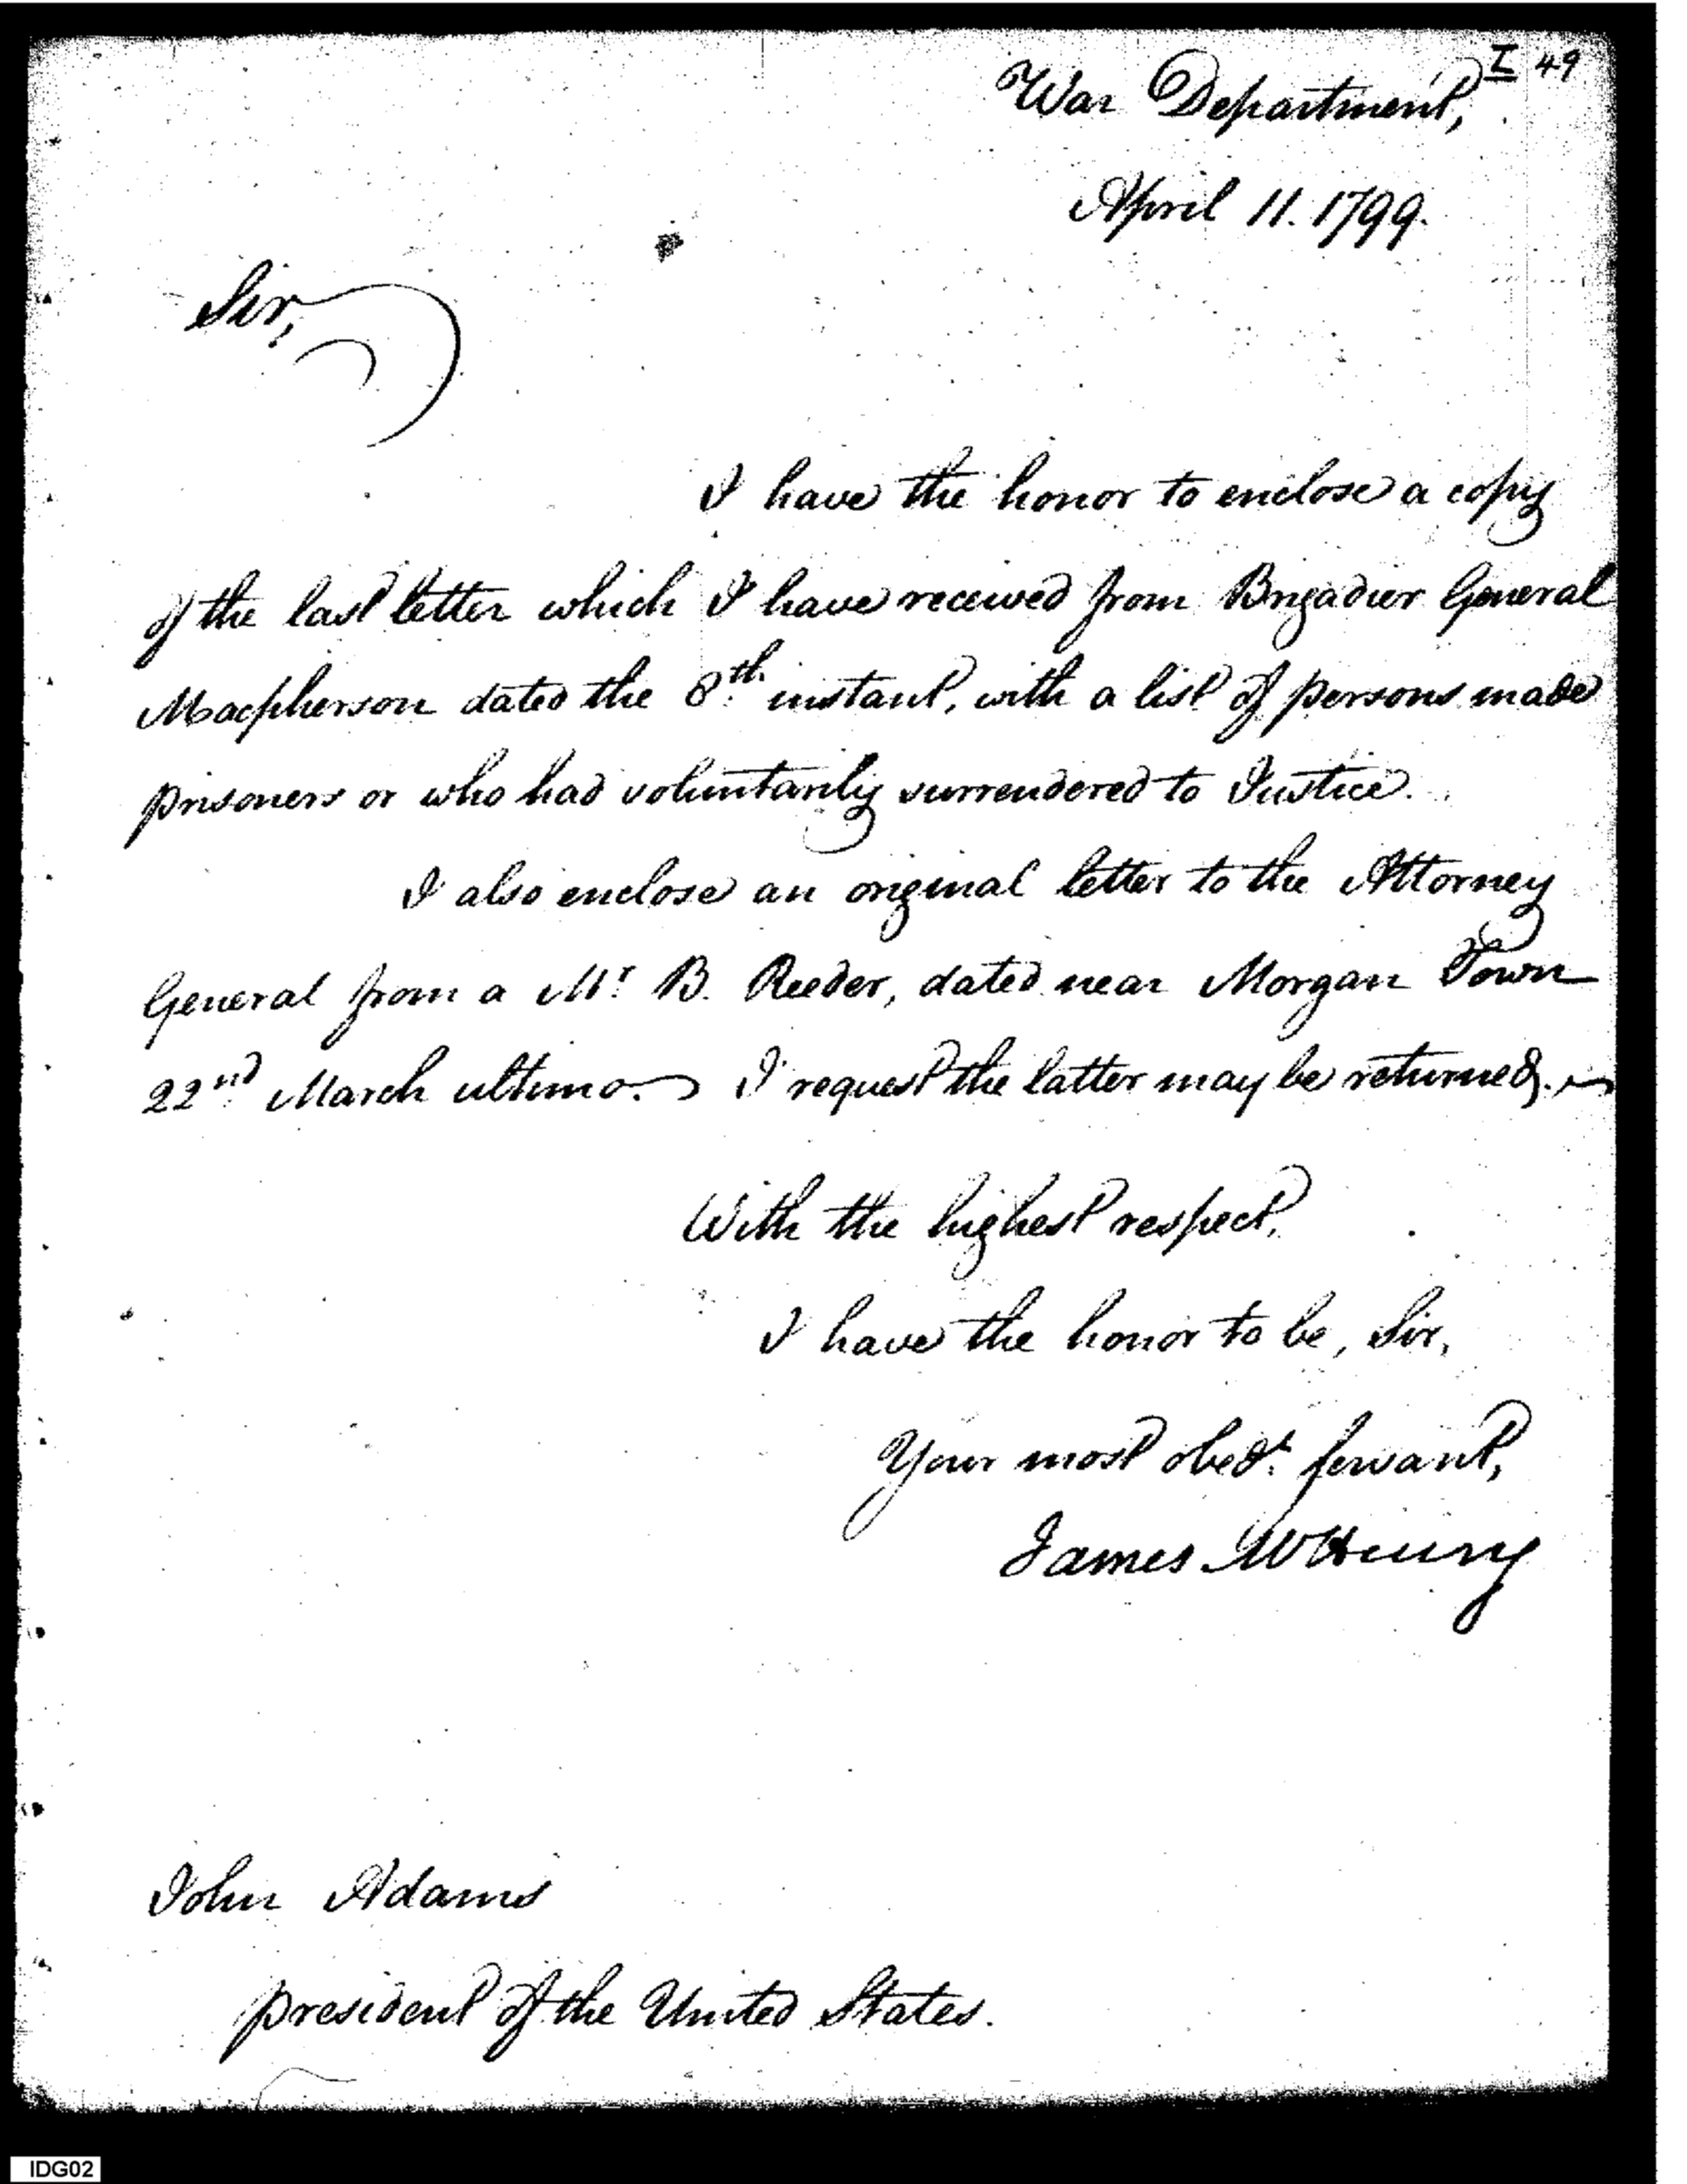 I 49
War Department,
April 11. 1799.
Sir,
I have the honor to enclose a copy
of the last letter which I have received from Brigadier General
Macpherson dated the 8th. instant, with a list of persons made
prisoners or who had voluntarily surrendered to Justice.
I also enclose an original letter to the Attorney
General from a Mr. B. Reeder, dated near Morgan Town
22nd. March ultimo. I request the latter may be returned.
With the highest respect,
I have the honor to be, Sir,
Your most obedt. servant,
James McHenry
John Adams
President of the United States.
IDG02